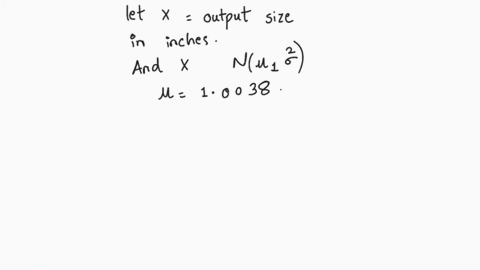 let x = output size
in inches.
And X N(μ, σ²)
μ = 1.0038.